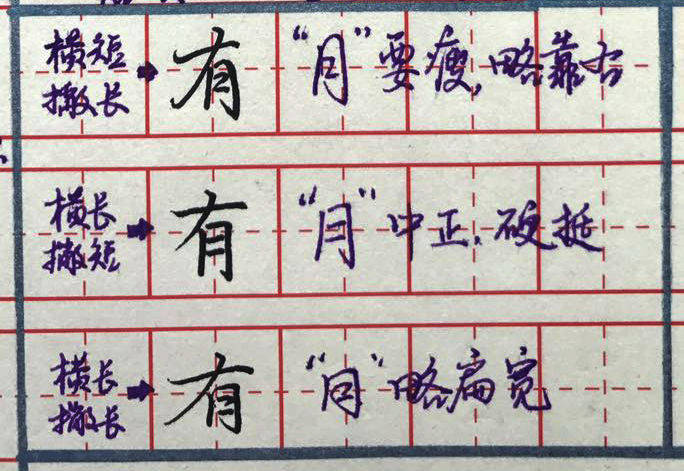 横短
撇长
有
“月”要瘦,略靠右
横长
撇短
有
“月”中正,硬挺
横长
撇长
有
“月”略扁宽